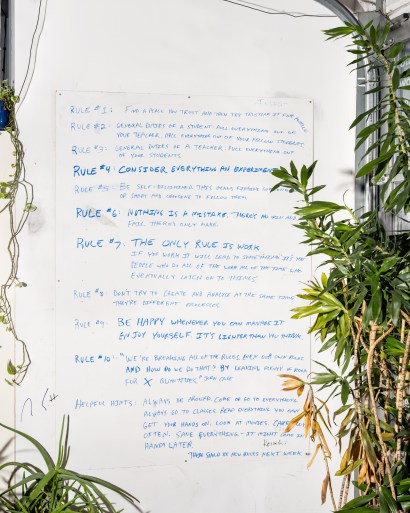 RULE #1: FIND A PLACE YOU TRUST AND THEN TRY TRUSTING IT FOR AWHILE
RULE #2: GENERAL DUTIES OF A STUDENT: PULL EVERYTHING OUT OF
YOUR TEACHER. PULL EVERYTHING OUT OF YOUR FELLOW STUDENTS.
RULE #3: GENERAL DUTIES OF A TEACHER: PULL EVERYTHING OUT
OF YOUR STUDENTS.
RULE #4: CONSIDER EVERYTHING AN EXPERIMENT
RULE #5: BE SELF-DISCIPLINED. THIS MEANS FINDING SOMEONE
OR SMART AND CHOOSING TO FOLLOW THEM.
RULE #6: NOTHING IS A MISTAKE. THERE'S NO WIN AND
FAIL. THERE'S ONLY MAKE.
RULE #7: THE ONLY RULE IS WORK
IF YOU WORK IT WILL LEAD TO SOMETHING. IT'S THE
PEOPLE WHO DO ALL OF THE WORK ALL OF THE TIME WHO
EVENTUALLY CATCH ON TO THINGS
RULE #8: DON'T TRY TO CREATE AND ANALYSE AT THE SAME TIME
THEY'RE DIFFERENT PROCESSES.
RULE #9: BE HAPPY WHENEVER YOU CAN MANAGE IT
ENJOY YOURSELF. IT'S LIGHTER THAN YOU THINK.
RULE #10: "WE'RE BREAKING ALL OF THE RULES. EVEN OUR OWN RULES.
AND HOW DO WE DO THAT? BY LEAVING PLENTY OF ROOM
FOR X QUANTITIES." JOHN CAGE
HELPFUL HINTS: ALWAYS BE AROUND. COME OR GO TO EVERYTHING.
ALWAYS GO TO CLASSES. READ EVERYTHING YOU CAN
GET YOUR HANDS ON. LOOK AT MOVIES CAREFULLY
OFTEN. SAVE EVERYTHING - IT MIGHT COME IN
HANDY LATER.
THERE SHOULD BE NEW RULES NEXT WEEK.